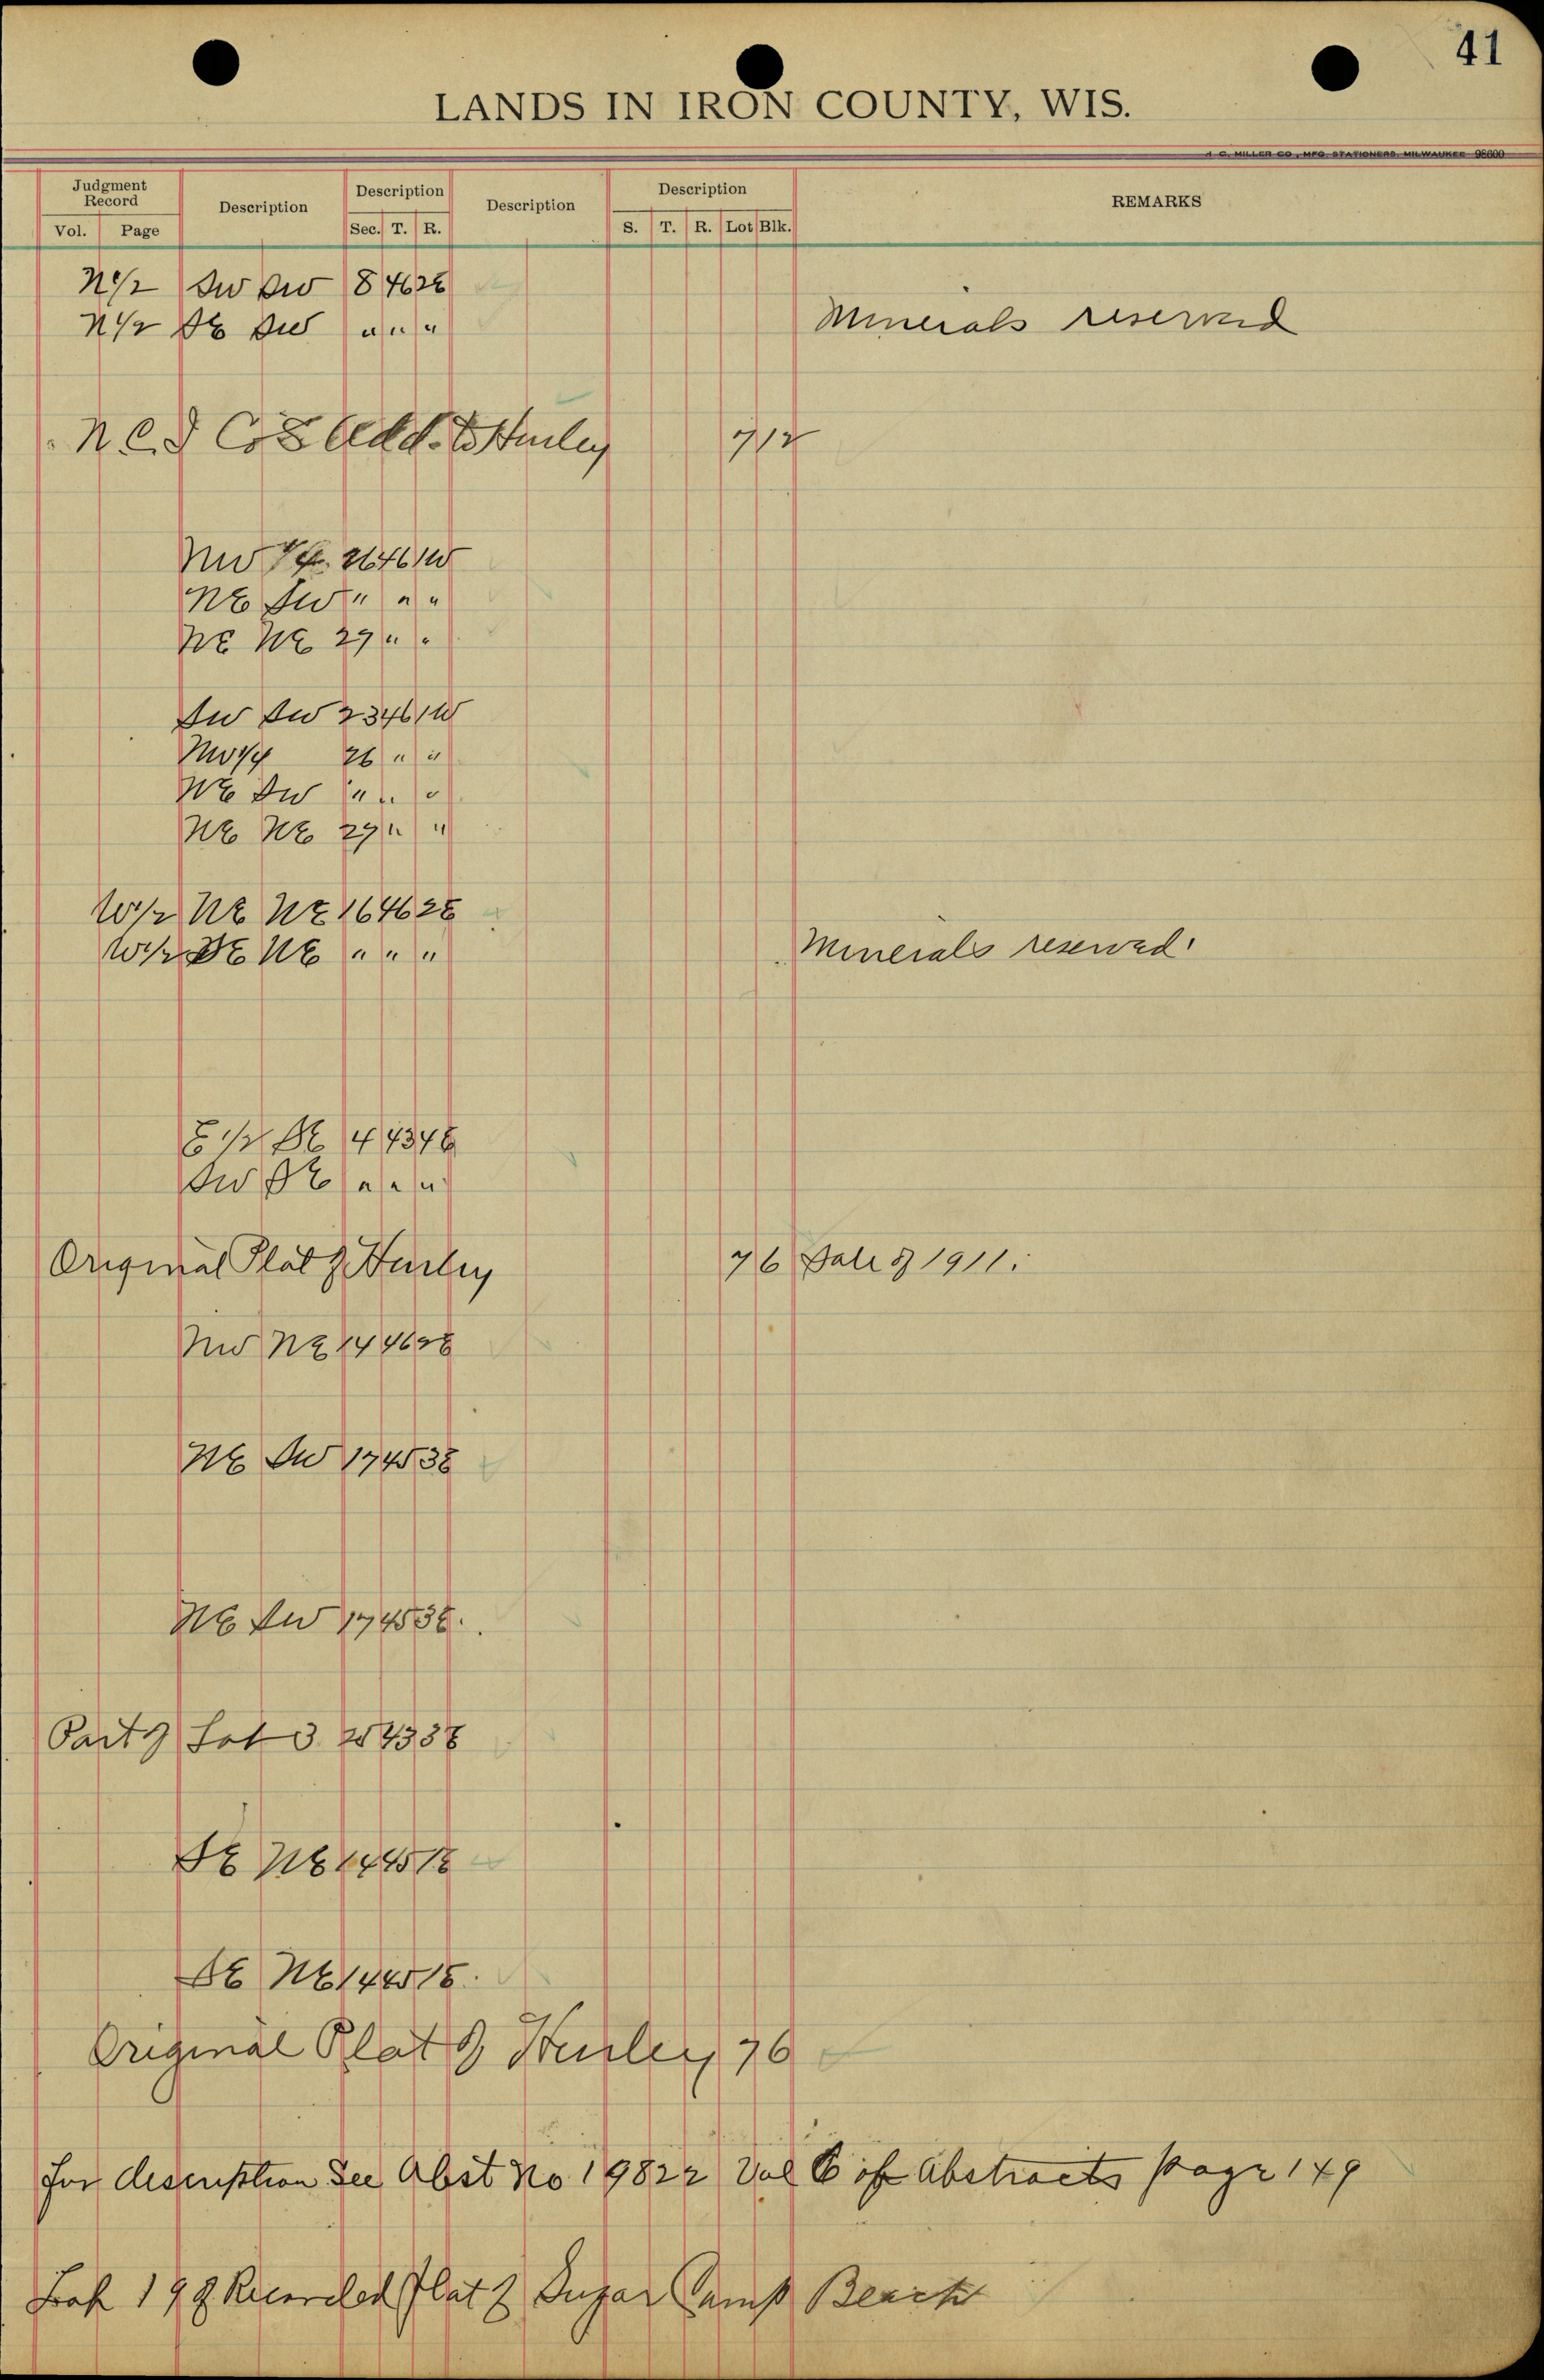 41
LANDS IN IRON COUNTY, WIS.
H. C. MILLER CO., MFG. STATIONERS, MILWAUKEE 98600
Judgment Record Description Description Description Description REMARKS
Vol. Page Sec. T. R. S. T. R. Lot Blk.
N 1/2 SW SW 8 46 2E
N 1/2 SE SW " " " Minerals reserved
N.C.I Co's Add. to Hurley 7 12
NW 1/4 26 46 1W
NE SW " " "
NE NE 29 " "
SW SW 23 46 1W
NW 1/4 26 " "
NE SW " " "
NE NE 29 " "
W 1/2 NE NE 16 46 2E
W 1/2 SE NE " " " Minerals reserved.
E 1/2 SE 4 43 4E
SW SE " " "
Original Plat of Hurley 7 6 Sale of 1911.
NW NE 14 46 2E
NE SW 17 45 3E
NE SW 17 45 3E.
Part of Lot 3 25 43 3E
SE NE 14 45 1E
SE NE 14 45 1E.
Original Plat of Hurley 7 6
For description See Abst No 19822 Vol 6 of Abstracts page 149
Lot 19 of Recorded Plat of Sugar Camp Beach